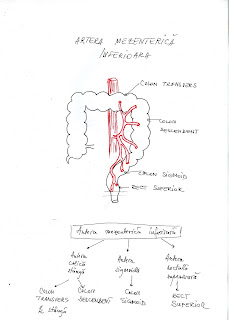 ARTERA MEZENTERICĂ
INFERIOARĂ
COLON TRANSVERS
COLON
DESCENDENT
COLON SIGMOID
RECT SUPERIOR
Artera mezenterică inferioară
Artera
colică
stângă
Artera
sigmoidă
Artera
rectală
superioară
COLON
TRANSVERS
½ stângă
COLON
DESCENDENT
COLON
SIGMOID
RECT
SUPERIOR